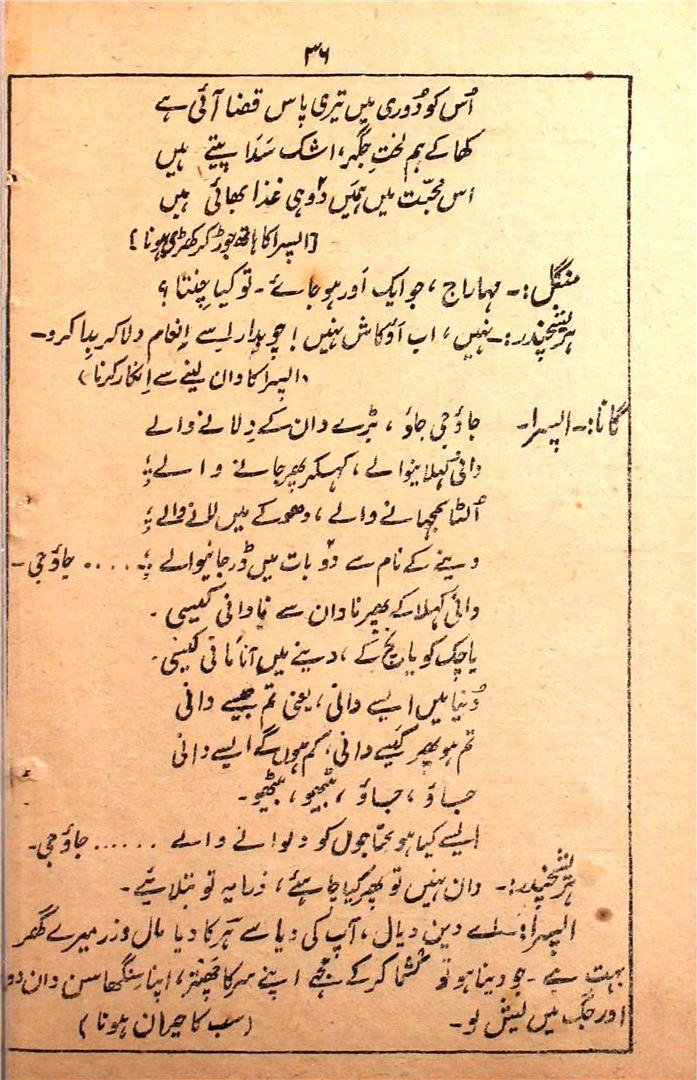 ۳۶
اُس کو دُوری میں تیری پاس قضا آئی ہے
کھا کے ہم لختِ جگر، اشک سَدا پیتے ہیں
اس محبّت میں ہمَیں دو ہی غذا بھائی ہیں
[السپرا کا ہاتھ جوڑ کر کھڑی ہونا]
منگل:۔ مہاراج، جو ایک اَور ہو جائے۔ تو کیا چِنتا؟
ہریشچندر:۔ نہیں، اب اَوکاش نہیں! چوبدار اِسے اِنعام دلا کر بِدا کرو۔
(السپرا کا دان لینے سے اِنکار کرنا)
گانا:۔ السپرا۔ جاؤ جی جاؤ، بڑے دان کے دِلانے والے
دانی کہلانیوالے، کہکر پھر جانے والے؛
اُلٹا سمجھانے والے، دھوکے میں لانے والے؛
دینے کے نام سے دو بات میں ڈر جانیوالے؛ .... جاؤ جی۔
دانی کہلا کے پھر نادان سے نادانی کیسی۔
یاچک کو یاچ کے، دینے میں آنا کانی کیسی۔
دُنیا میں ایسے دانی، یعنی تم جیسے دانی
تم ہو پھر کَیسے دانی، کم ہوں گے ایسے دانی
جاؤ، جاؤ، بیٹھیو، بیٹھیو۔
ایسے کیا ہو محتاجوں کو دلوانے والے ...... جاؤ جی۔
ہریشچندر:۔ دان نہیں تو پھر کیا چاہئے، ذرا یہ تو بتلائیے۔
السپرا:۔ اے دین دیال، آپ کی دیا سے ہَر کا دیا مال و زر میرے گھر
بہت ہے۔ جو دینا ہو تو کشما کر کے مجھے اپنے سر کا چھتر، اپنا سنگھاسن دان دو
اور جگ میں یَش لو۔ (سب کا حیران ہونا)